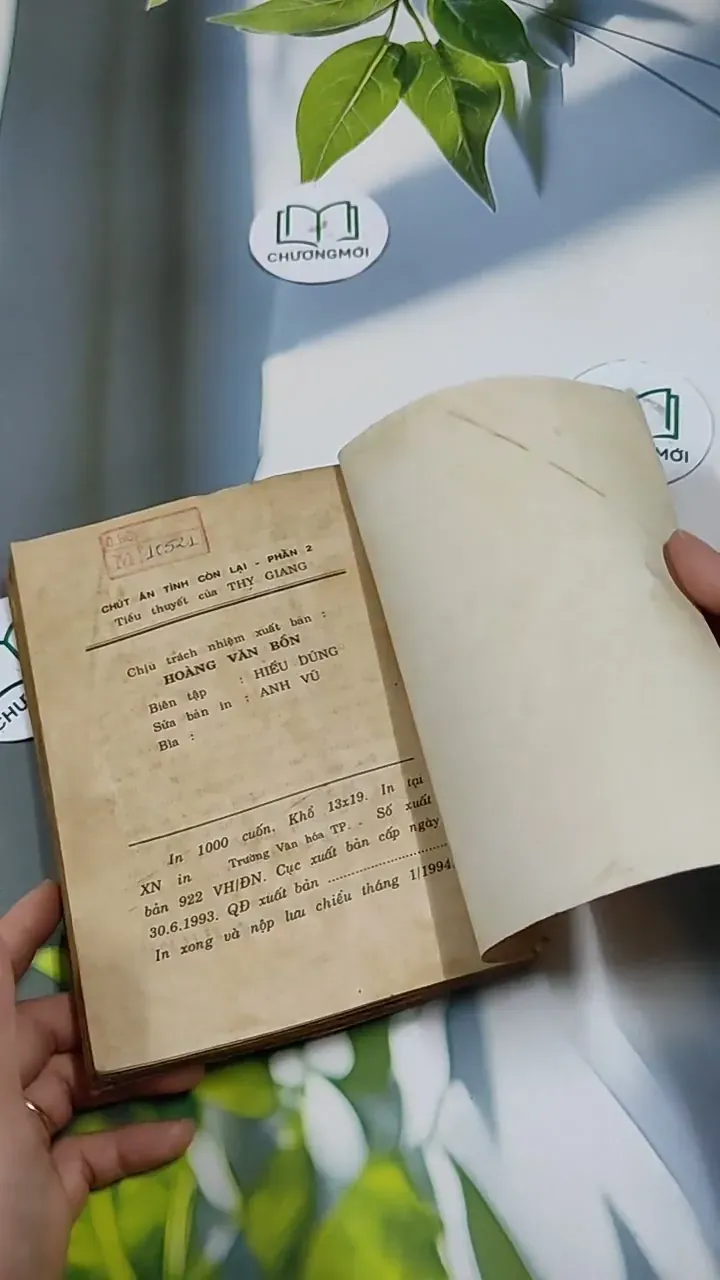 CHƯƠNGMỚI
MỚI
CHƯ
10521
CHÚT ÂN TÌNH CÒN LẠI - PHẦN 2
Tiểu thuyết của THỴ GIANG
Chịu trách nhiệm xuất bản :
HOÀNG VĂN BỔN
Biên tập : HIẾU DŨNG
Sửa bản in : ANH VŨ
Bìa :
In 1000 cuốn, Khổ 13x19. In tại
XN in Trường Văn hóa TP. - Số xuất
bản 922 VH/ĐN. Cục xuất bản cấp ngày
30.6.1993. QĐ xuất bản ....................
In xong và nộp lưu chiểu tháng 1/1994.